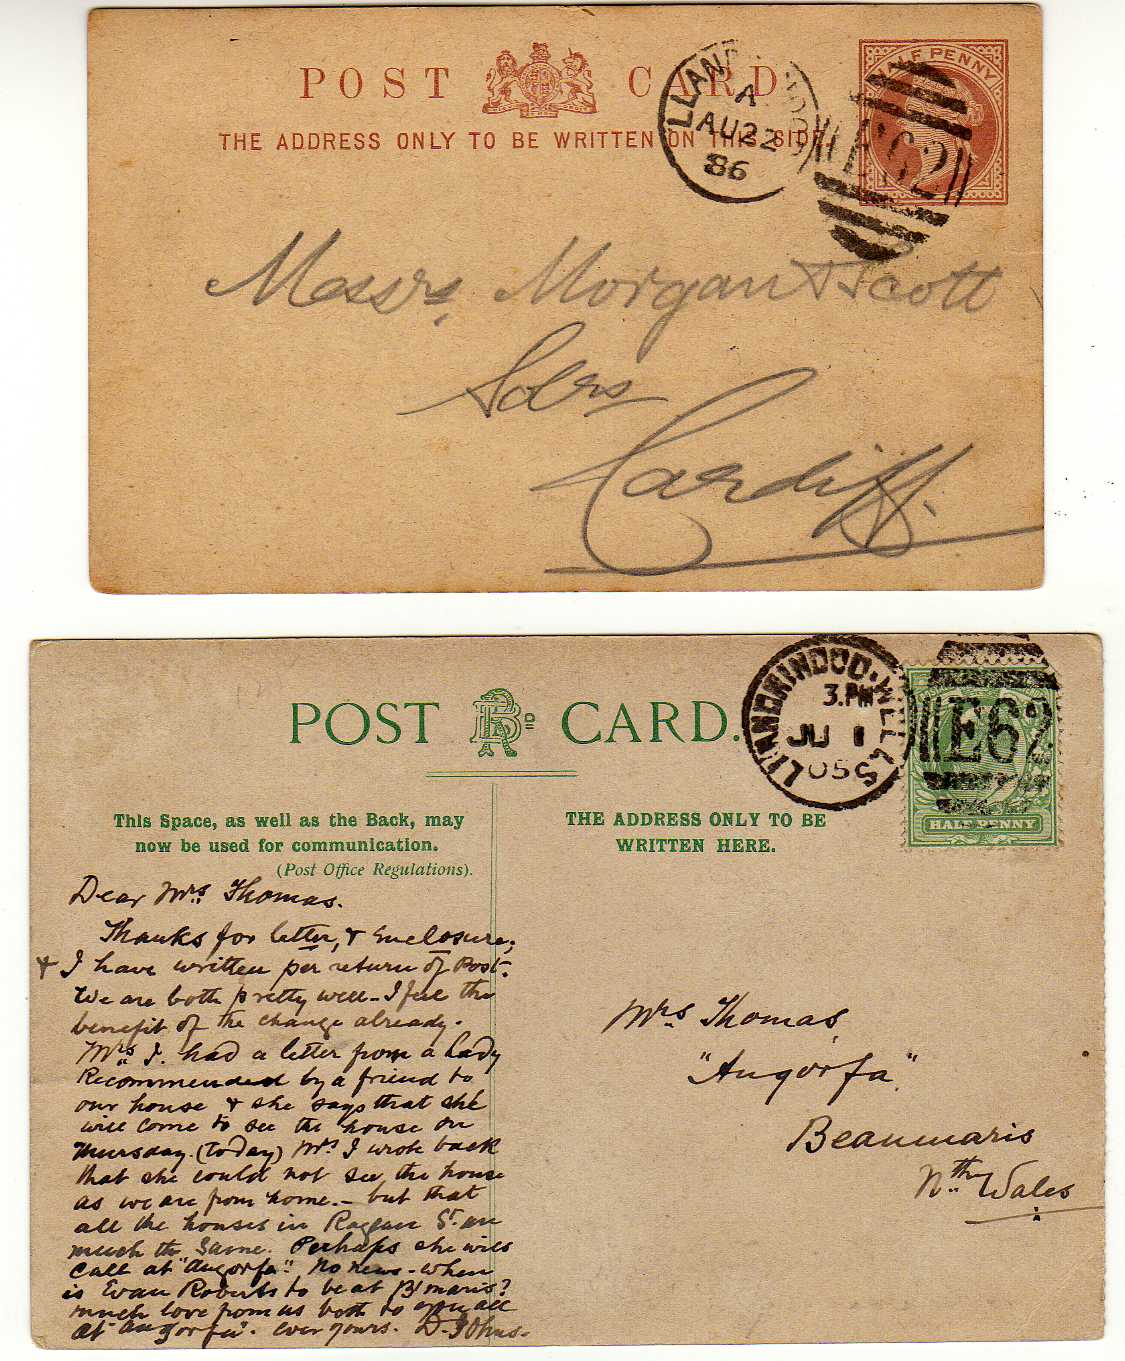 POST CARD
THE ADDRESS ONLY TO BE WRITTEN ON THIS SIDE
A
AU 22
86
HALF PENNY
E62
Messrs Morgan & Scott
Solrs
Cardiff.
POST CARD.
LLANDRINDOD·WELLS
3.PM
JU 1
05
E62
HALF PENNY
This Space, as well as the Back, may
now be used for communication.
(Post Office Regulations).
THE ADDRESS ONLY TO BE
WRITTEN HERE.
Dear Mrs Thomas.
Thanks for letter, & Enclosure,
& I have written per return of Post.
We are both pretty well - I feel the
benefit of the change already.
Mrs J. had a letter from a Lady
Recommended by a friend to
our house & she says that she
will come to see the house on
Thursday. (today) Mrs J wrote back
that she could not see the house
as we are from home. - but that
all the houses in Raglan St. are
much the same. Perhaps she will
call at "Angorfa". No news - when
is Evan Roberts to be at B'maris?
much love from us both to you all
at "Angorfa". ever yours. D. Johns.
Mrs Thomas
"Angorfa".
Beaumaris
Nth Wales